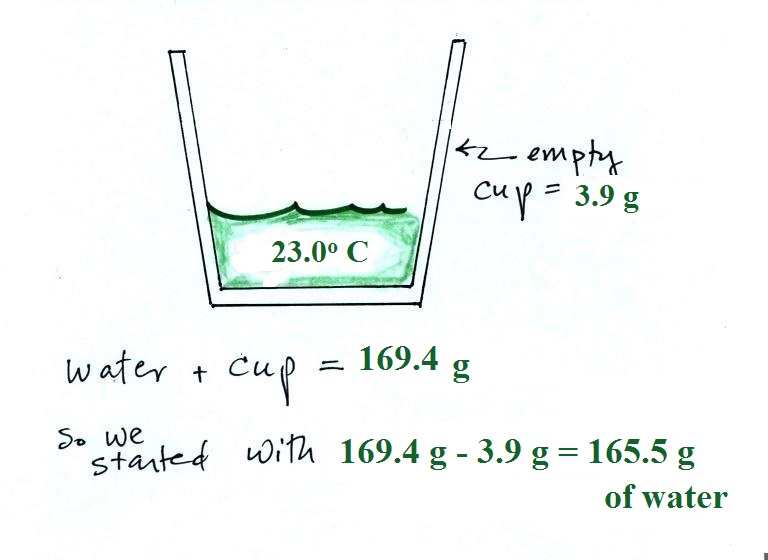 ← empty
cup = 3.9 g
23.0º C
water + cup = 169.4 g
So we
started with 169.4 g - 3.9 g = 165.5 g
of water